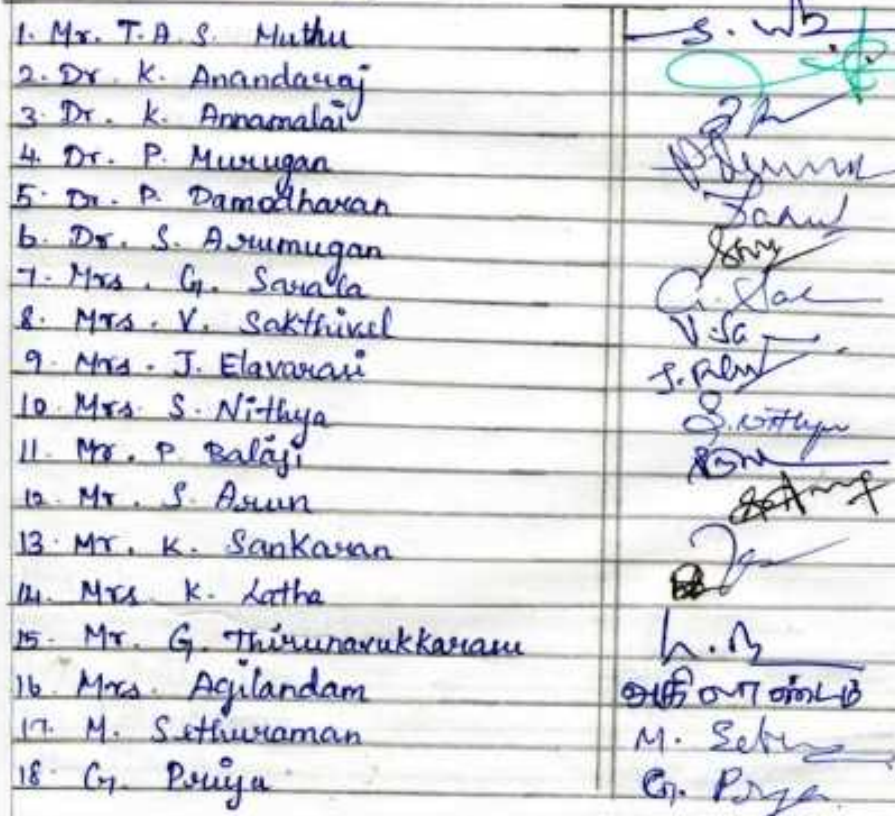 1. Mr. T. A. S. Muthu
2. Dr. K. Anandaraj
3. Dr. K. Annamalai
4. Dr. P. Murugan
5. Dr. P. Damodharan
6. Dr. S. Arumugan
7. Mrs. G. Sarala G. Sar
8. Mrs. V. Sakthivel V. Sa
9. Mrs. J. Elavarasi
10. Mrs. S. Nithya S. Nithya
11. Mr. P. Balaji
12. Mr. S. Arun
13. Mr. K. Sankaran
14. Mrs. K. Latha
15. Mr. G. Thirunavukkarasu
16. Mrs. Agilandam அகிலாண்டம்
17. M. Sethuraman M. Setu
18. G. Priya G. Priya